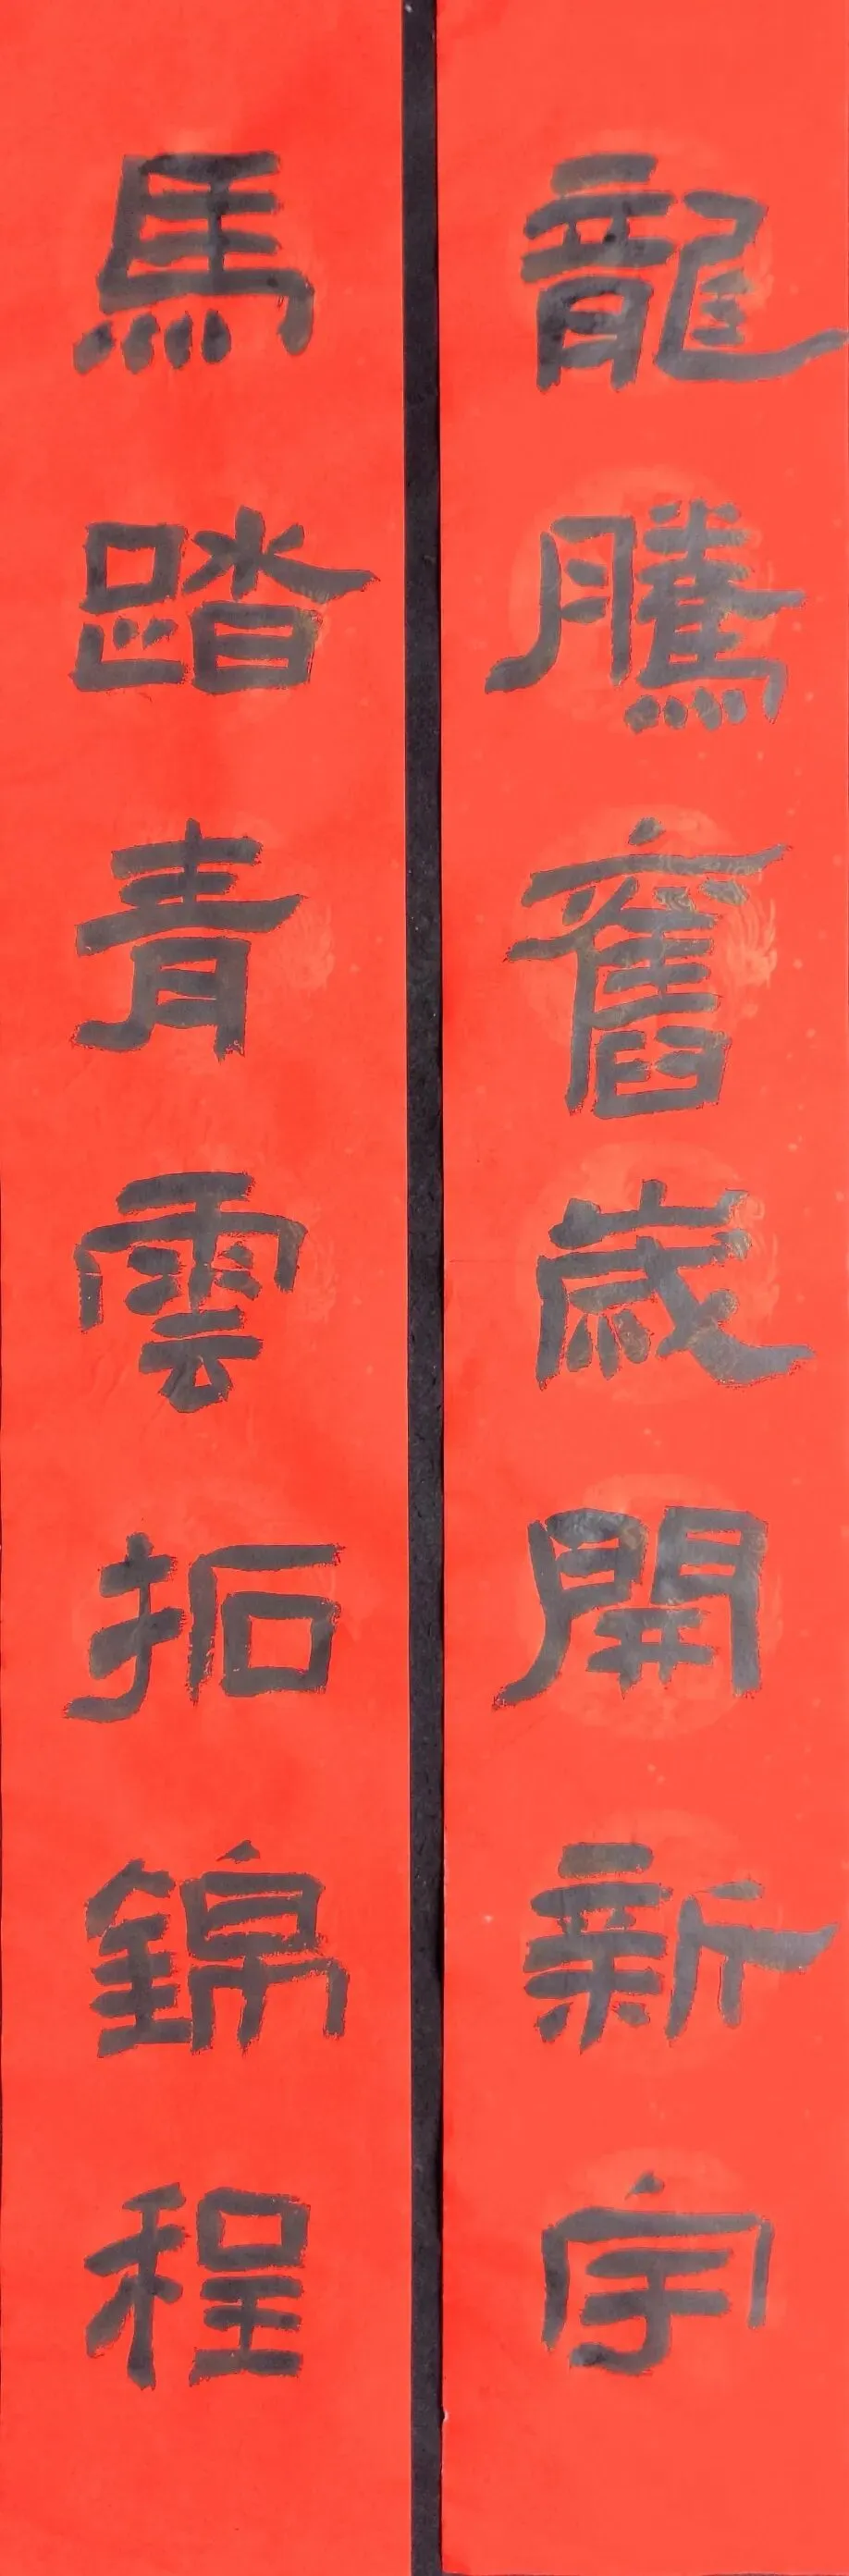 龍騰舊歲開新宇
馬踏青雲拓錦程